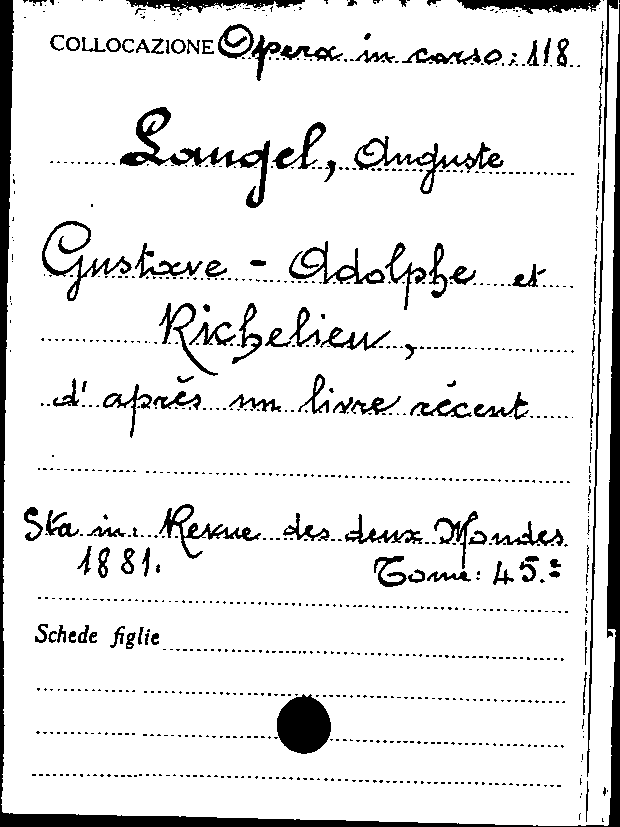 COLLOCAZIONE Opera in corso: 118
Laugel, Auguste
Gustave - Adolphe et
Richelieu,
d' après un livre récent
Sta in: Revue des deux Mondes
1881. Tome: 45.º
Schede figlie